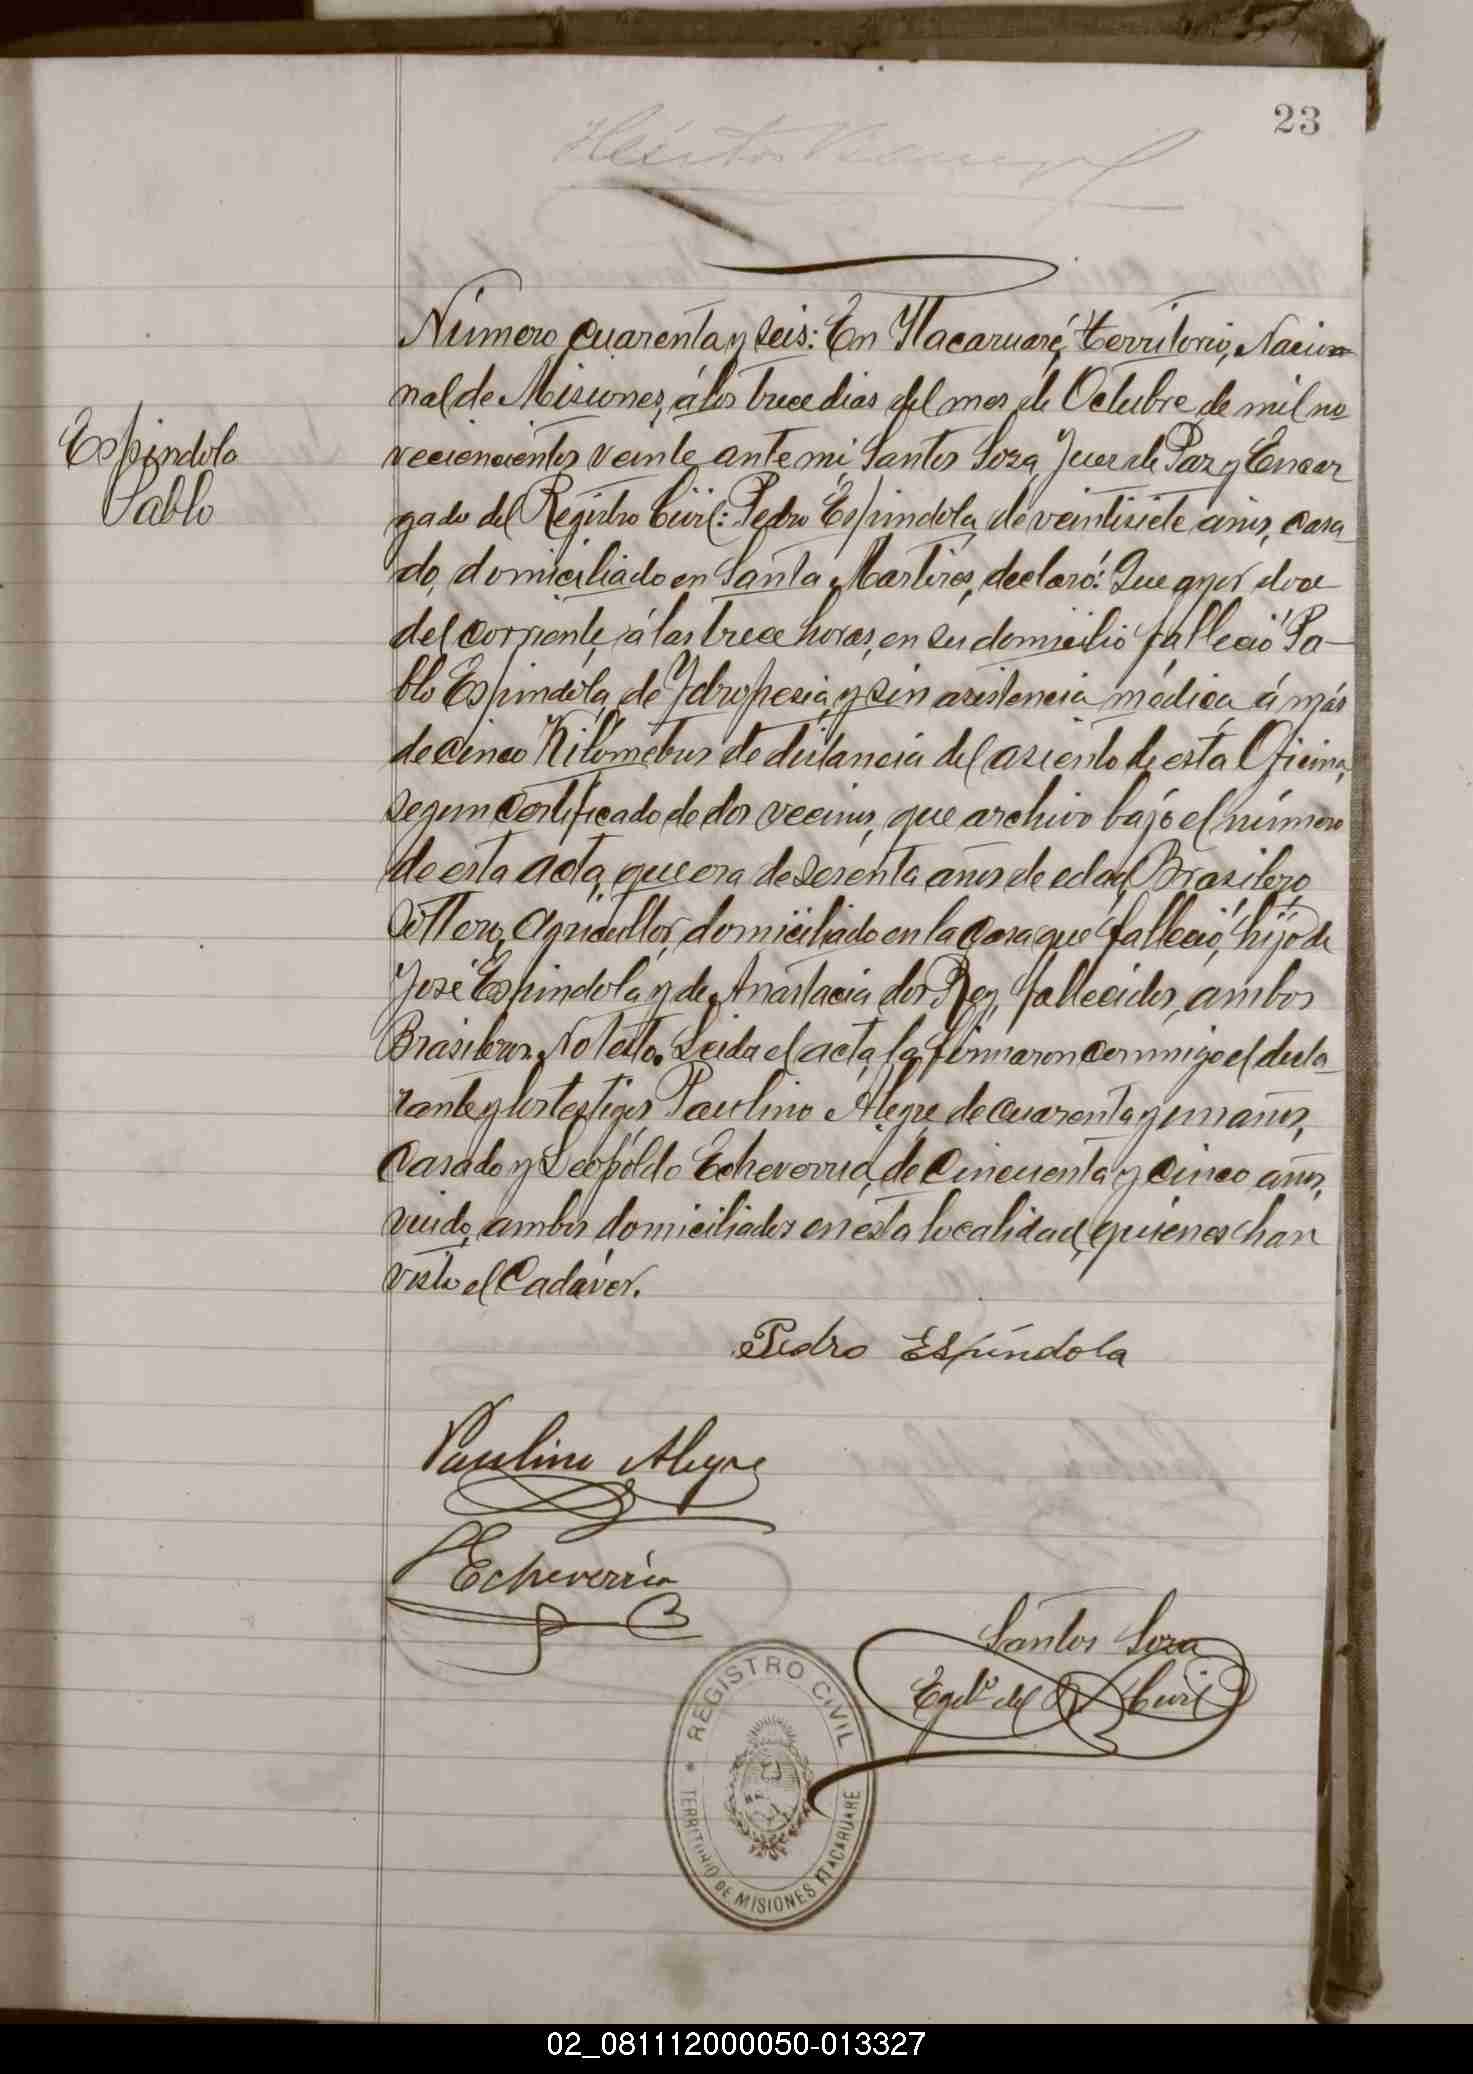 23
Número cuarenta y seis: En Ytacaruaré, territorio, Nacio-
nal de Misiones, á los trece dias del mes de Octubre de mil no-
Espindola
veciencientos veinte ante mi Santos Soza, Juez de Paz y Encar
Pablo
gado del Registro Civil: Pedro Espindola, de veintisiete años, casa
do, domiciliado en Santa Martires, declaró: Que ayer doce
del corriente, á las trece horas, en su domicilio falleció Pa-
blo Espindola, de Ydropesia, y sin asistencia médica á más
de cinco Kilómetros de distancia del asiento de esta Oficina,
segun certificado de dos vecinos, que archivo bajo el número
de esta acta, que era de sesenta años de edad, Brasilero,
soltero, agricultor, domiciliado en la casa que falleció, hijo de
José Espindola y de Anastacia dos Rey, fallecidos, ambos
Brasileros. No testo. Leida el acta, la firmaron conmigo el decla
rante y los testigos Paulino Alegre de cuarenta y un años,
casado y Leopoldo Echeverria, de cincuenta y cinco años,
viudo, ambos domiciliados en esta localidad, quienes han
visto el Cadáver.
Pedro Espíndola
Paulino Alegre
Echeverría
Santos Soza
Egdo del R. Civil
REGISTRO CIVIL
* TERRITORIO DE MISIONES ITACARUARE
02_081112000050-013327